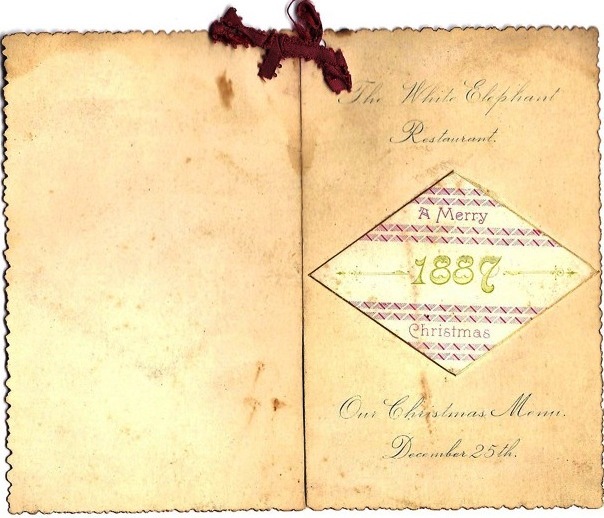 The White Elephant
Restaurant.
A Merry
1887
Christmas
Our Christmas Menu.
December 25th.